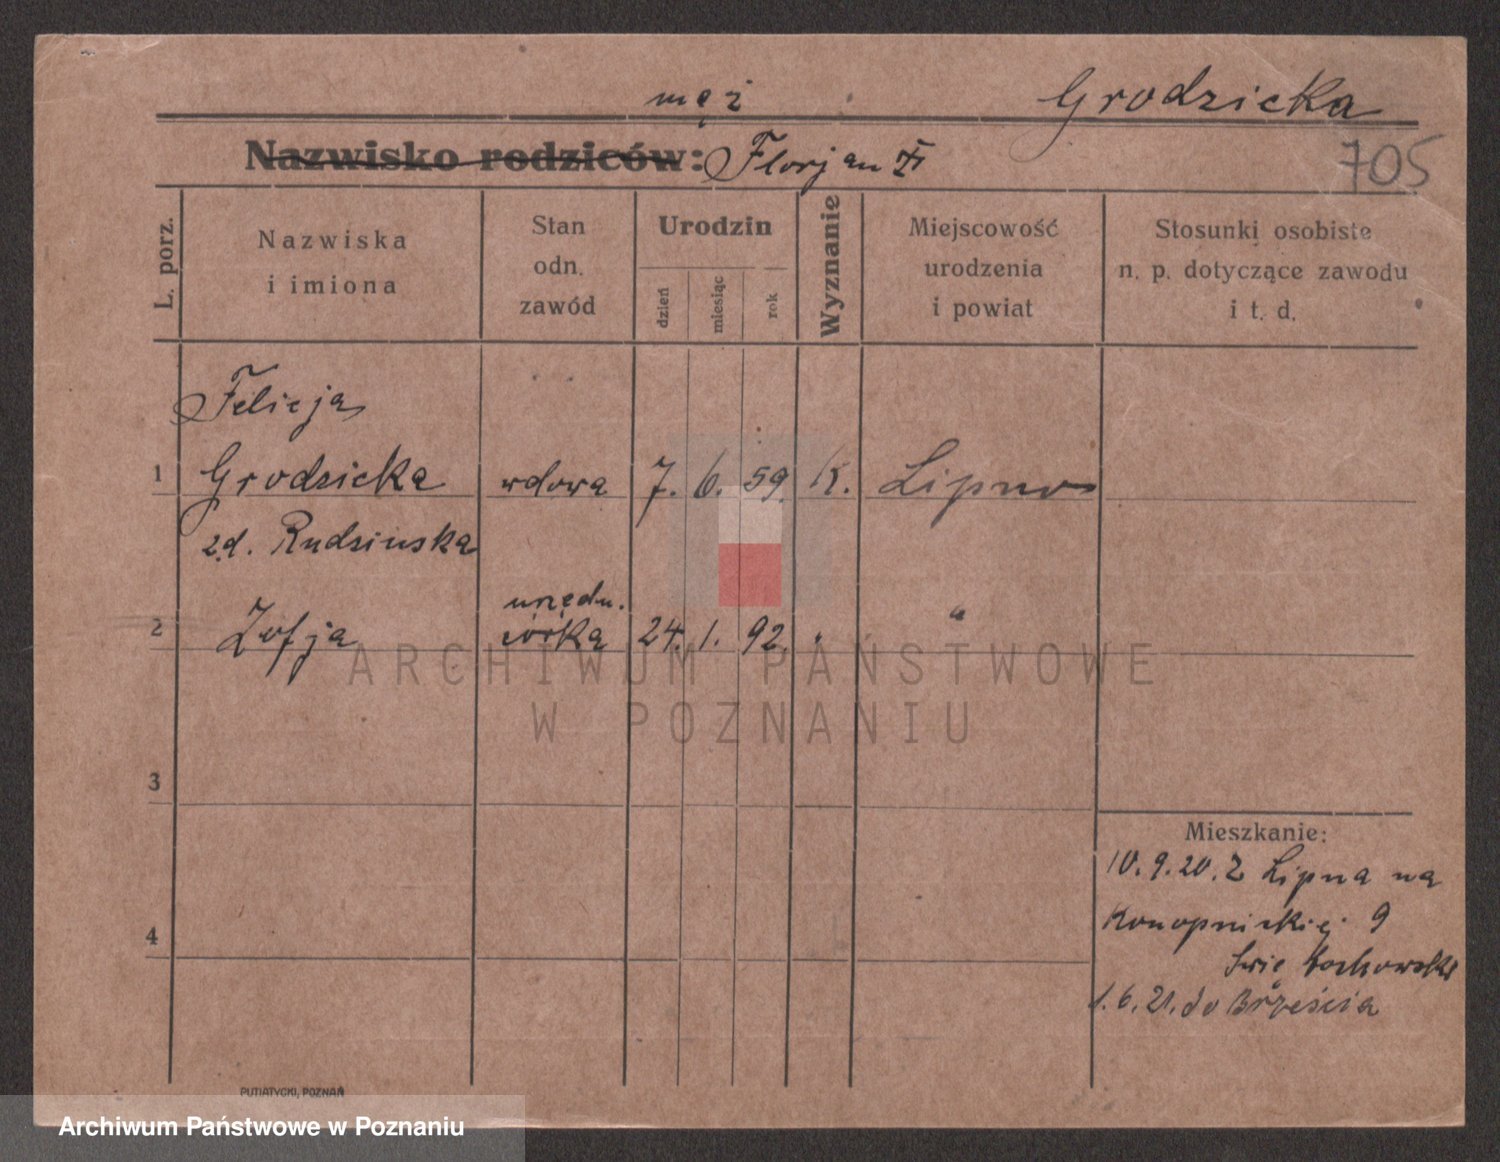 mąż Grodzicka
Nazwisko rodziców: Florjan
705
L. porz.
Nazwiska
i imiona
Stan
odn.
zawód
Urodzin
dzień
miesiąc
rok
Wyznanie
Miejscowość
urodzenia
i powiat
Stosunki osobiste
n. p. dotyczące zawodu
i t. d.
Felicja
1 Grodzicka wdowa 7. 6. 59. K. Lipno
z d. Rudzinska
urzędn.
2 Zofja córka 24. 1. 92. " "
ARCHIWUM PAŃSTWOWE
W POZNANIU
3
Mieszkanie:
10.9.20. z Lipna na
Konopnickiej 9
4
1.6.21. do Brześcia
PUTIATYCKI, POZNAŃ
Archiwum Państwowe w Poznaniu